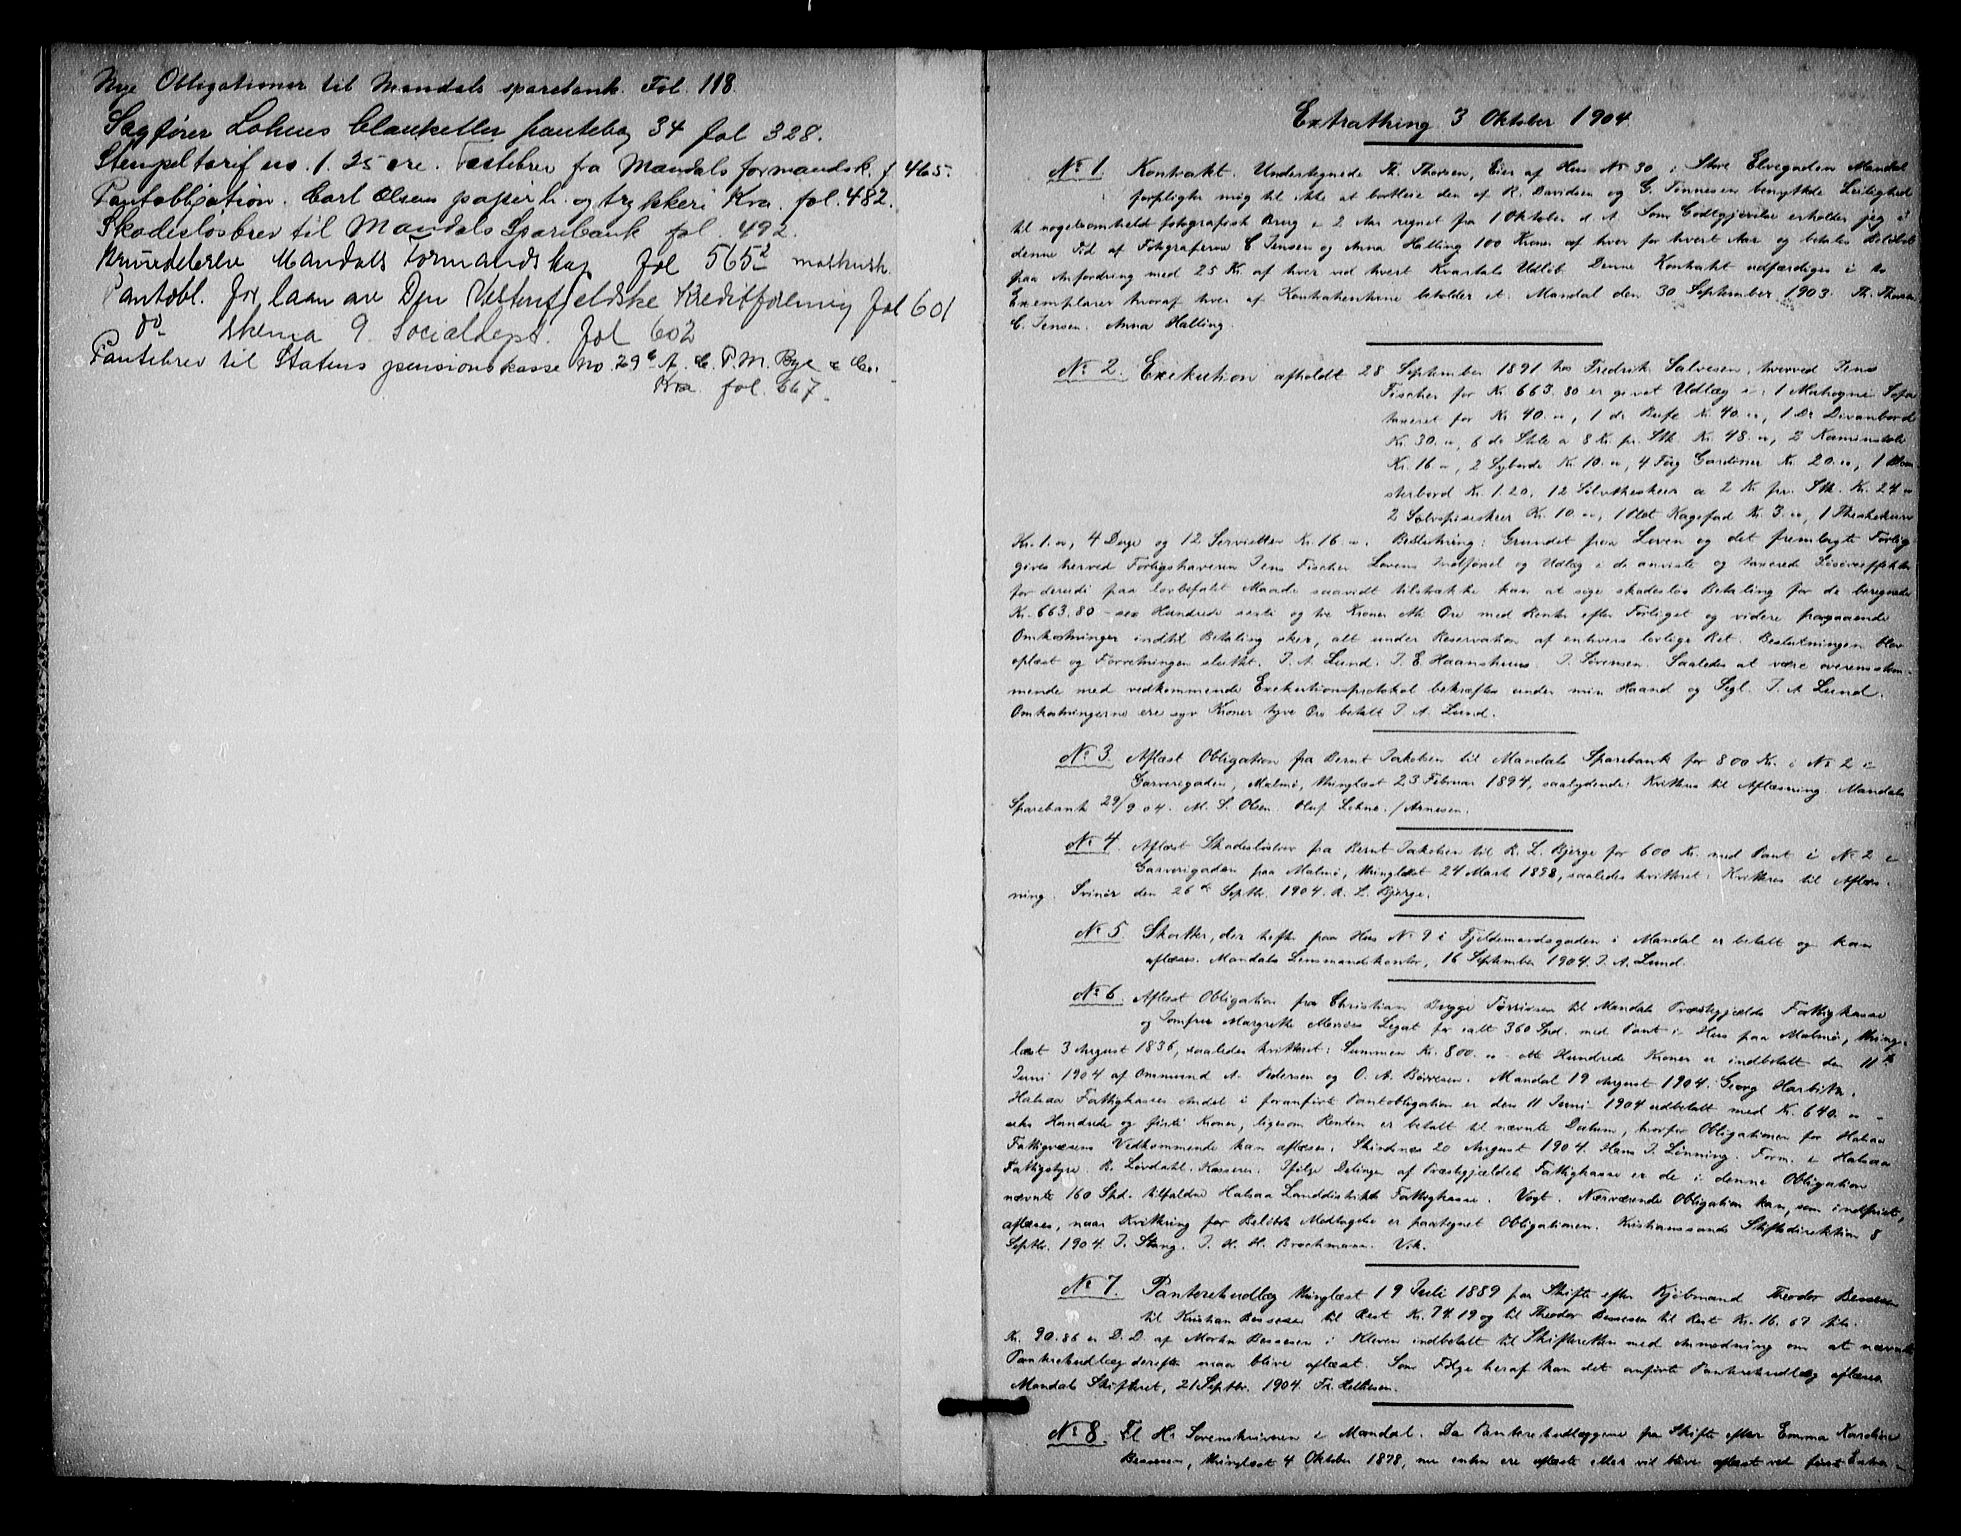 Nye Obligationer til Mandals sparebank. Fol. 118.
Sagfører Lohnes blanketter pantebog 34 fol 328.
Stempeltarif no. 1. 25 øre. Festebrev fra Mandals formandsk. f 465.
Pantobligation. Carl Olsens papirh. og trykkeri Kra. fol. 482.
Skadesløsbrev til Mandals Sparebank fol. 492.
Mandals Formandskap fol 565
Pantobl. for laan av Den Vestenfjeldske Kreditforening fol 601
do skema 9. Socialdept. fol 602
Pantebrev til Statens pensionskasse no. 29 A. C. P. M. Bye & Co.
Kra. fol. 667.
Extrathing 3 Oktober 1904.
No 1. Kontrakt. Undertegnede Th. Thorsen, Eier af Hus No 30 i Store Elvegaden Mandal
forpligter mig til ikke at bortleie den af R. Davidsen og G. Tønnesen benyttede Leilighed
til nogetsomhelst fotografisk Brug i 2 Aar regnet fra 1 Oktober d. A. Som Godtgjørelse erholder jeg i
denne Tid af Fotograferne C. Jensen og Anna Halling 100 Kroner af hver for hvert Aar og betales Beløbet
paa Anfodring med 25 Kr. af hver ved hvert Kvartals Udløb. Denne Kontrakt udfærdiges i to
Exemplarer hvoraf hver af Kontrahenterne beholder et. Mandal den 30 September 1903. Th. Thorsen
C. Jensen. Anna Halling.
No 2. Exekution afholdt 28 September 1891 hos Fredrik Salvesen, hvorved Jens
Fischer for Kr. 663.80 er givet Udlæg i: 1 Mahogni Sofa
taxeret for Kr. 40.00, 1 do Bufe Kr. 40.00, 1 Do Divanbord
Kr. 30.00, 6 do Stole a 8 Kr. pr. Stk. Kr. 48.00, 2 Kaminstole
Kr. 16.00, 2 Syborde Kr. 10.00, 4 Fag Gardiner Kr. 20.00, 1 Blom
sterbord Kr. 1.20, 12 Sølvtheskeer a 2 Kr. pr. Stk. Kr. 24.00
2 Sølvspiseskeer Kr. 10.00, 1 Plet Kagefad Kr. 3.00, 1
Kr. 1.00, 4 Duge og 12 Servietter Kr. 16.00. Beslutning: Grundet paa Loven og det fremlagte Forlig
gives herved Forligshaveren Jens Fischer Lovens Indførsel og Udlæg i de anviste og taxerede Løsøreeffekter
for derudi paa lovbefalet Maade saavidt tilstrække kan at søge skadesløs Betaling for de beregnede
Kr. 663.80 - sex Hundrede sexti og tre Kroner otti Øre med Renter efter Forliget og videre paagaaende
Omkostninger indtil Betaling sker, alt under Reservation af enhvers lovlige Ret. Beslutningen blev
oplæst og Forretningen sluttet. J. A. Lund. J. E. Haanshuus. J. Sørensen. Saaledes at være overensstem-
mende med vedkommende Exekutionsprotokol bekræftes under min Haand og Segl. J. A. Lund.
Omkostningerne ere syv Kroner tyve Øre betalt J. A. Lund.
No 3. Aflæst Obligation fra Bernt Jakobsen til Mandals Sparebank for 800 Kr. i No 2 i
Garverigaden, Malmø, thinglæst 23 Februar 1894, saalydende: Kvitteres til Aflæsning. Mandals
Sparebank 29/9 04. M. S. Olsen. Oluf Lohne. /Arnesen.
No 4. Aflæst Skadesløsbrev fra Bernt Jakobsen til R. L. Bjerge for 600 Kr. med Pant i No 2 i
Garverigaden paa Malmø, thinglæst 24 Marts 1898, saaledes kvitteret: Kvitteres til Aflæs-
ning. Svinør den 26de Septbr. 1904. R. L. Bjerge.
No 5. Skatter, der hefter paa Hus No 9 i Fjeldmandsgaden i Mandal er betalt og kan
aflæses. Mandals Lensmandskontor, 16 September 1904. J. A. Lund.
No 6. Aflæst Obligation fra Christian Brygge Tørrisen til Mandals Præstegjælds Fattigkasse
og Jomfru Margrethe Legat for ialt 360 Spd. med Pant i Hus paa Malmø, thing-
læst 3 August 1836, saaledes kvitteret: Summen Kr. 800.00 - otte Hundrede Kroner er indbetalt den 11te
Juni 1904 af Ommund A. Pedersen og O. A. Børresen. Mandal 19 August 1904. Georg Harbitz.
Halsaa Fattigkasses Andel i foranførte Pantobligation er den 11 Juni 1904 udbetalt med Kr. 640.00 -
seks Hundrede og førti Kroner, ligesom Renten er betalt til nævnte Datum, hvorfor Obligationen for Halsaa
Fattigvæsens Vedkommende kan aflæses. Skindsnes 20 August 1904. Hans J. Lønning. Form. i Halsaa
Fattigstyre. B. Løvdahl. Kasserer. Ifølge Delingen af Præstegjældets Fattigkasse er de i denne Obligation
nævnte 160 Spd. tilfaldne Halsaa Landdistrikts Fattigkasse. Vogt. Nærværende Obligation kan, som indfriet,
aflæses, naar Kvittering for Beløbets Modtagelse er paategnet Obligationen. Kristianssands Stiftsdirektion 8
Septbr. 1904. J. Stang. J. H. H. Brochmann. V.k.
No 7. Panteretudlæg thinglæst 19 Juli 1889 paa Skifte efter Kjøbmand Theodor Bessesen
til Kristian Bessesen til Rest Kr. 74.19 og til Theodor Bessesen til Rest Kr. 16.67 tils.
Kr. 90.86 er D. D. af Morten Bessesen i Kleven indbetalt til Skifteretten med Anmodning om at nævnte
Panteretudlæg derefter maa blive aflæst. Som Følge heraf kan det anførte Panteretudlæg aflæses
Mandals Skifteret, 21 Septbr. 1904. Fr. Helliesen.
No 8. Til Hr. Sorenskriveren i Mandal. Da Panteretudlæggene paa Skifte efter Emma Karoline
Bessesen, thinglæst 4 Oktober 1878, nu enten ere aflæste eller vil blive aflæst ved første Extra-